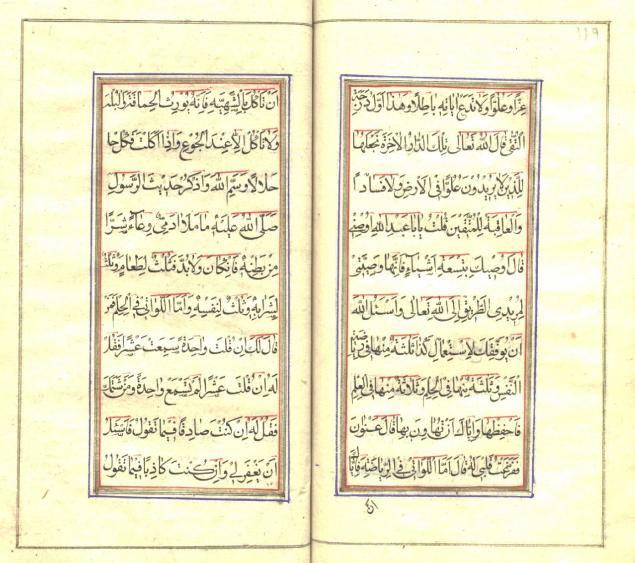 ١١٩
عزا وعلوا ولا تدع ايامه باطلا وهذا اول درجة
التقى قال الله تعالى تلك الدار الاخرة نجعلها
للذين لا يريدون علوا في الارض ولا فسادا
والعاقبة للمتقين قلت يا با عبد الله اوصني
قال اوصيك بتسعة اشياء فانها وصيتي
لمريدي الطريق الى الله تعالى واسئل الله
ان يوفقك لاستعمال كذا ثلثة منها في رياضة
النفس وثلثة منها في الحلم وثلاثة منها في العلم
فاحفظها واياك ان تهاون بها قال عنوان
ففرغت قلبي له قال اما اللواتي في الرياضة فاياك
ان
ان تاكل ما لا تشتهيه فانه يورث الحماقة والبله
ولا تاكل الا عند الجوع واذا اكلت فكل
حلالا وسم الله واذكر حديث الرسول
صلى الله عليه ما ملا ادمي وعاء شرا
من بطنه فان كان ولا بد فثلث لطعامه وثلث
لشرابه وثلث لنفسه واما اللواتي في الحلم فمن
قال لك ان قلت واحدة سمعت عشرا فقل
له ان قلت عشرا لم تسمع واحدة ومن شتمك
فقل له ان كنت صادقا فيما تقول فاسئل
ان يغفر لي وان كنت كاذبا فيما تقول